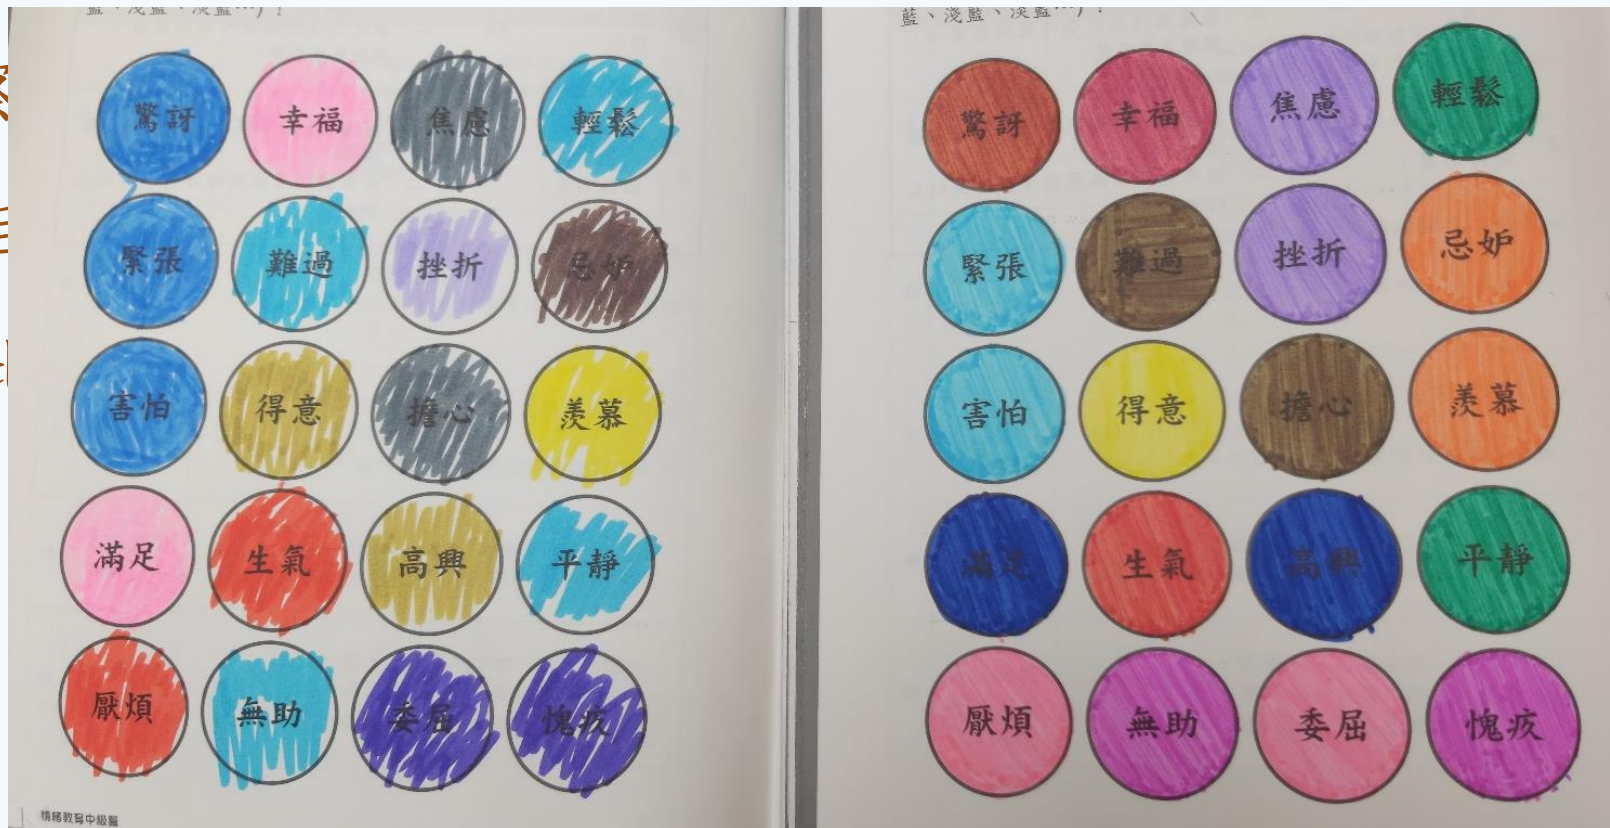 藍、淺藍、淡藍…)？
驚訝 幸福 焦慮 輕鬆
緊張 難過 挫折 忌妒
害怕 得意 擔心 羨慕
滿足 生氣 高興 平靜
厭煩 無助 委屈 愧疚
情緒教育中級篇
藍、淺藍、淡藍…)？
驚訝 幸福 焦慮 輕鬆
緊張 難過 挫折 忌妒
害怕 得意 擔心 羨慕
滿足 生氣 高興 平靜
厭煩 無助 委屈 愧疚